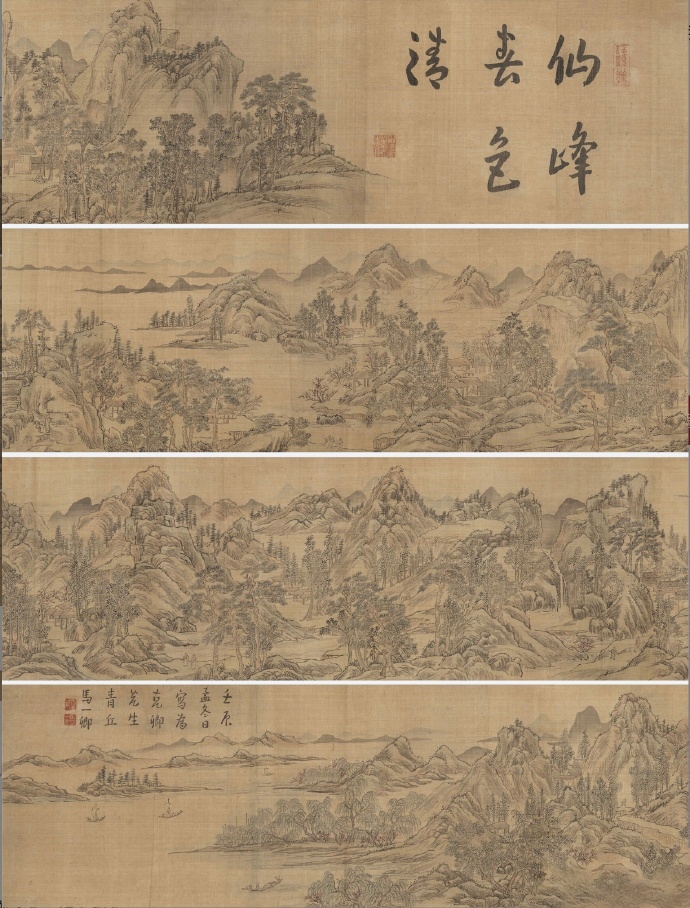 仙峰
春色
清
壬辰
孟冬日
寫為
苑卿
先生
青丘
馬一卿